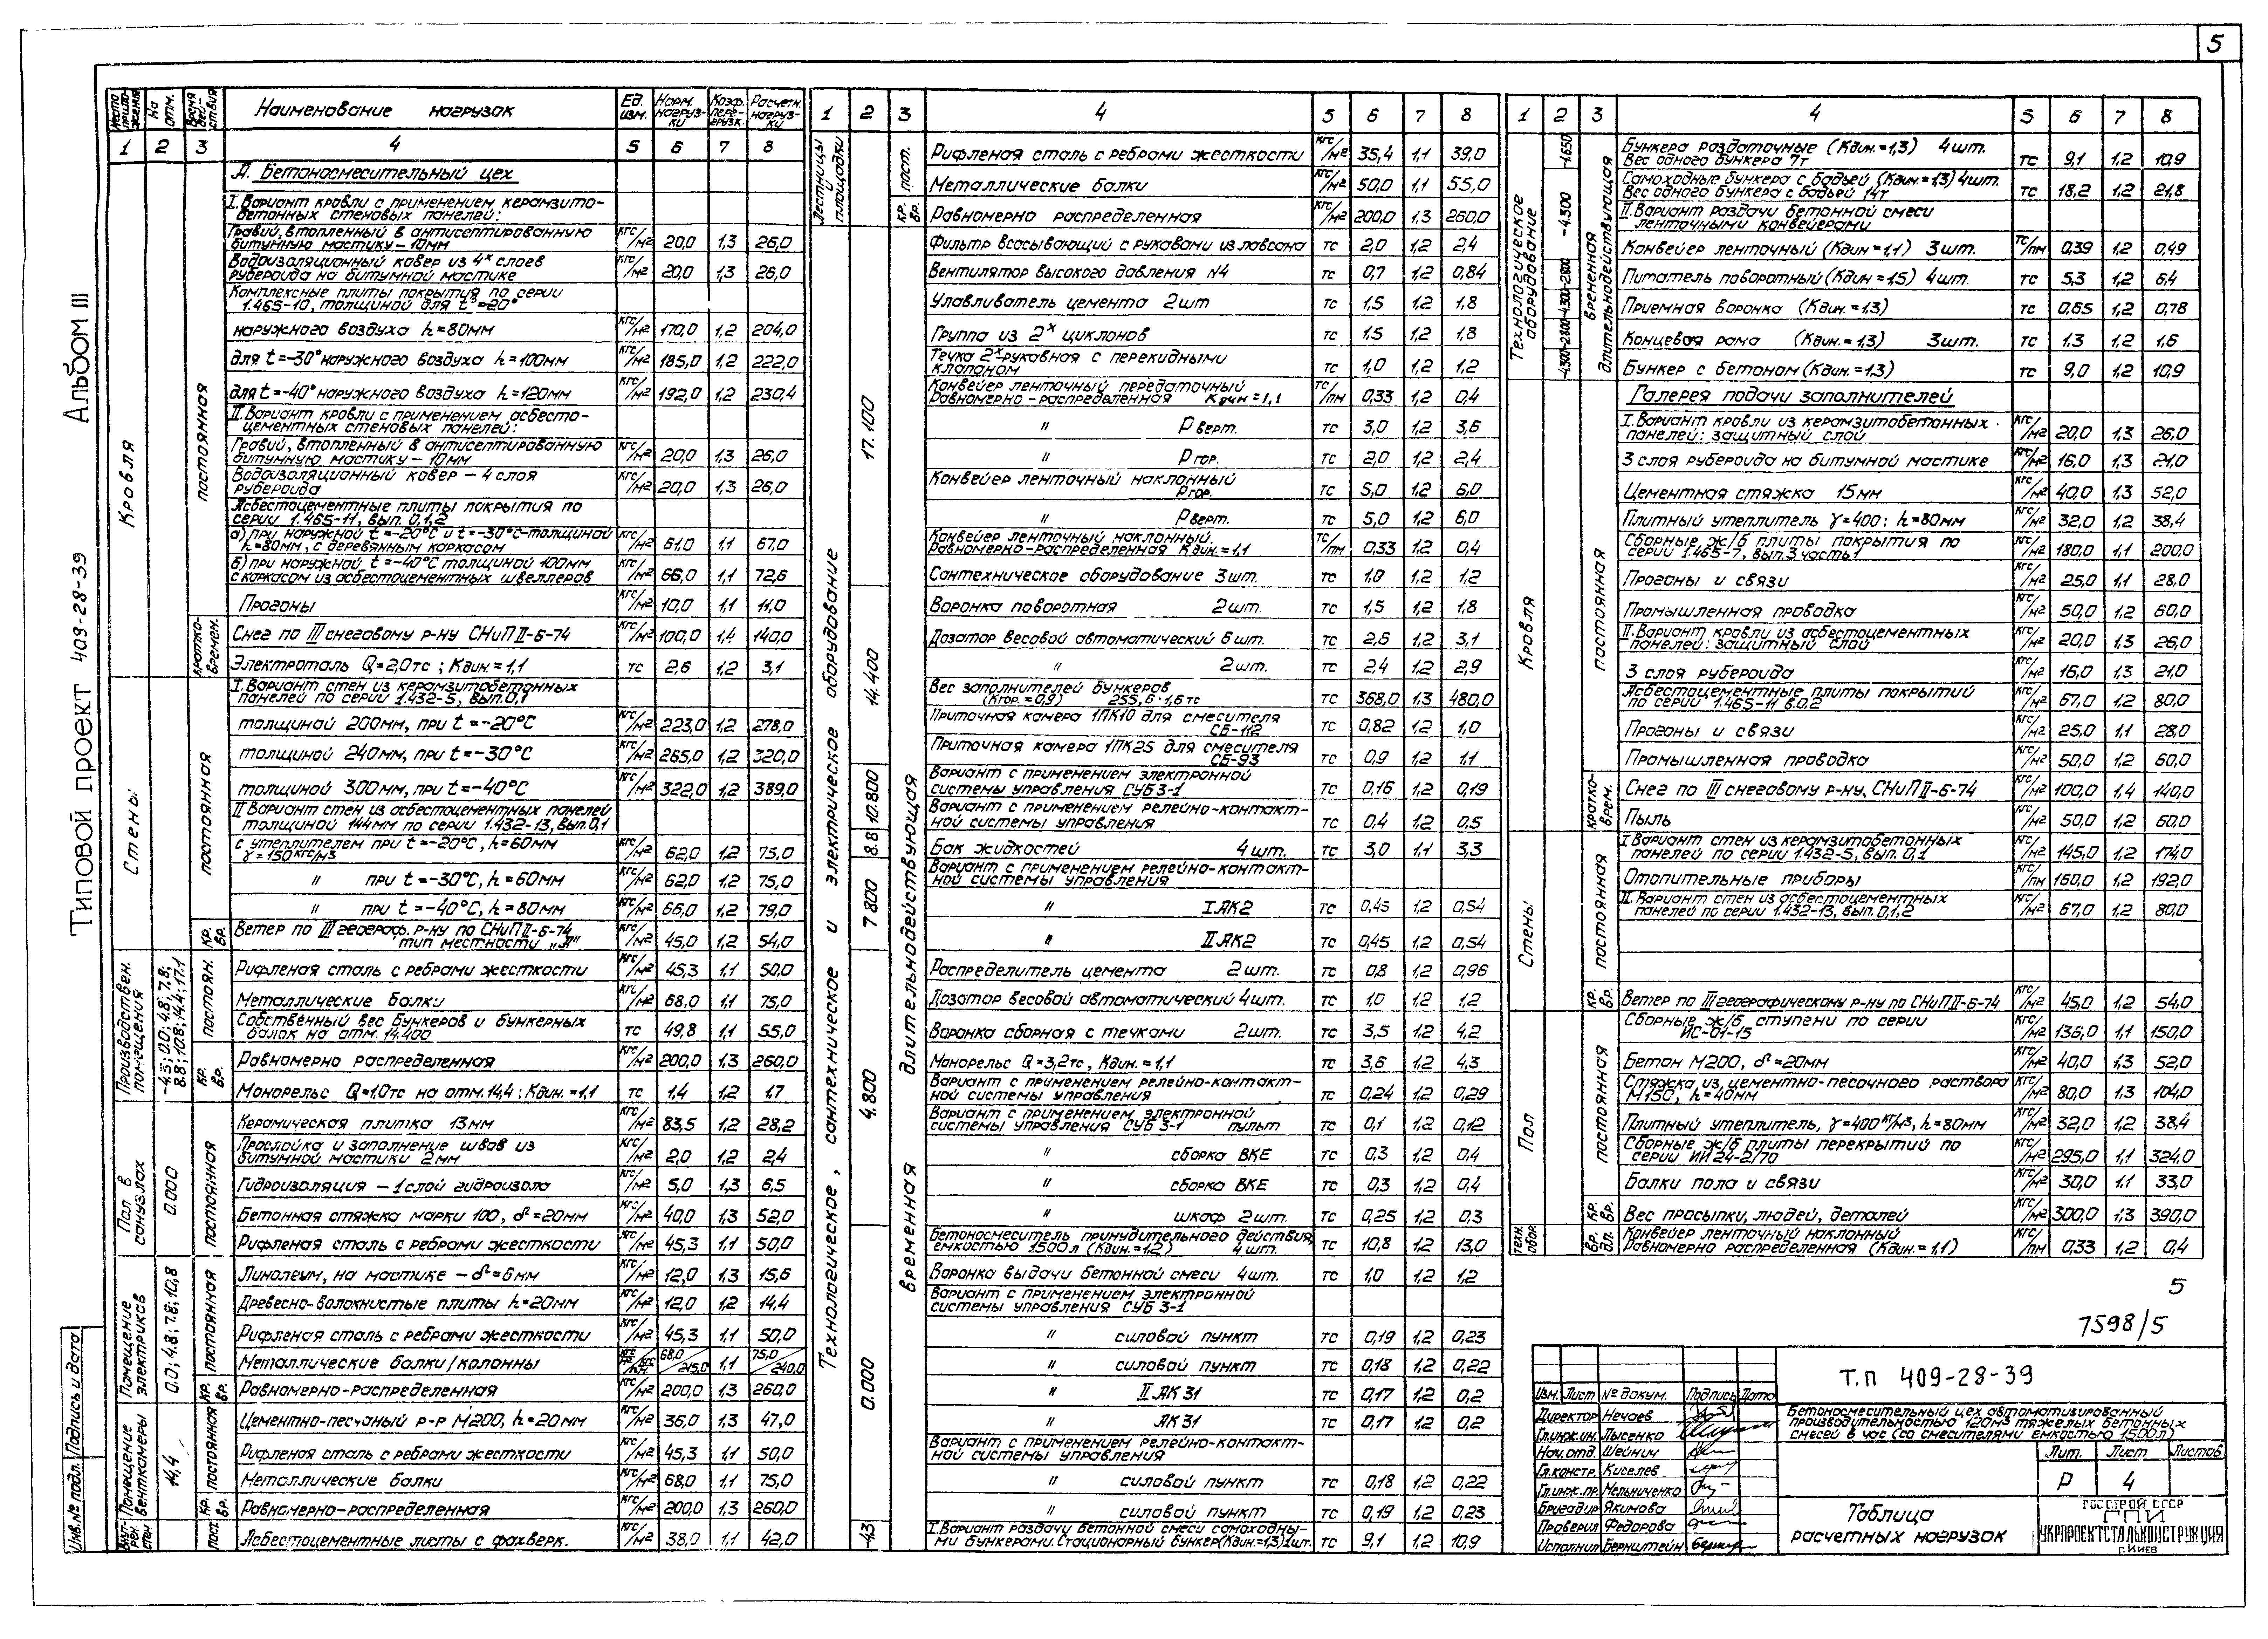 5
Типовой проект 409-28-39 Альбом III
Инв.№ подл. Подпись и дата
Место приложения | На отм. | Время действия | Наименование нагрузок | Ед. изм. | Норм. нагрузки | Коэф. перегрузк. | Расчетн. нагрузки
1 2 3 4 5 6 7 8
Кровля
постоянная
А. Бетоносмесительный цех
I. Вариант кровли с применением керамзито-
бетонных стеновых панелей:
Гравий, втопленный в антисептированную
битумную мастику – 10мм кгс/м2 20,0 1,3 26,0
Водоизоляционный ковер из 4х слоев
рубероида на битумной мастике кгс/м2 20,0 1,3 26,0
Комплексные плиты покрытия по серии
1.465-10, толщиной для t°=-20°
наружного воздуха h=80мм кгс/м2 170,0 1,2 204,0
для t=-30° наружного воздуха h=100мм кгс/м2 185,0 1,2 222,0
для t=-40° наружного воздуха h=120мм кгс/м2 192,0 1,2 230,4
II. Вариант кровли с применением асбесто-
цементных стеновых панелей:
Гравий, втопленный в антисептированную
битумную мастику – 10мм кгс/м2 20,0 1,3 26,0
Водоизоляционный ковер – 4 слоя
рубероида кгс/м2 20,0 1,3 26,0
Асбестоцементные плиты покрытия по
серии 1.465-11, вып. 0,1,2
а) при наружной t=-20°С и t=-30°С-толщиной
h=80мм, с деревянным каркасом кгс/м2 61,0 1,1 67,0
б) при наружной t=-40°С толщиной 100мм
с каркасом из асбестоцементных швеллеров кгс/м2 66,0 1,1 72,6
Прогоны кгс/м2 10,0 1,1 11,0
кратко-времен.
Снег по III снеговому р-ну СНиП II-6-74 кгс/м2 100,0 1,4 140,0
Электроталь Q=2,0тс; Кдин.=1,1 тс 2,6 1,2 3,1
Стены
постоянная
I. Вариант стен из керамзитобетонных
панелей по серии 1.432-5, вып.0,1
толщиной 200мм, при t=-20°С кгс/м2 223,0 1,2 278,0
толщиной 240мм, при t=-30°С кгс/м2 265,0 1,2 320,0
толщиной 300мм, при t=-40°С кгс/м2 322,0 1,2 389,0
II Вариант стен из асбестоцементных панелей
толщиной 144мм по серии 1.432-13, вып.0,1
с утеплителем при t=-20°С, h=60мм
γ=150кгс/м3 кгс/м2 62,0 1,2 75,0
" при t=-30°С, h=60мм кгс/м2 62,0 1,2 75,0
" при t=-40°С, h=80мм кгс/м2 66,0 1,2 79,0
кр. вр.
Ветер по III географ. р-ну по СНиП II-6-74
тип местности „А" кгс/м2 45,0 1,2 54,0
Производствен. помещения
-4.3; 0.0; 4.8; 7.8; 8.8; 10.8; 14.4; 17.1
постоян.
Рифленая сталь с ребрами жесткости кгс/м2 45,3 1,1 50,0
Металлические балки кгс/м2 68,0 1,1 75,0
Собственный вес бункеров и бункерных
балок на отм. 14.400 тс 49,8 1,1 55,0
кр. вр.
Равномерно распределенная кгс/м2 200,0 1,3 260,0
Монорельс Q=1,0тс на отм.14,4; Кдин.=1,1 тс 1,4 1,2 1,7
Пол в санузлах
0.000
постоянная
Керамическая плитка 13мм кгс/м2 83,5 1,2 28,2
Прослойка и заполнение швов из
битумной мастики 2мм кгс/м2 2,0 1,2 2,4
Гидроизоляция – 1 слой гидроизола кгс/м2 5,0 1,3 6,5
Бетонная стяжка марки 100, δ=20мм кгс/м2 40,0 1,3 52,0
Рифленая сталь с ребрами жесткости кгс/м2 45,3 1,1 50,0
Помещение электриков
0.0; 4.8; 7.8; 10.8
постоянная
Линолеум, на мастике – δ=6мм кгс/м2 12,0 1,3 15,6
Древесно-волокнистые плиты h=20мм кгс/м2 12,0 1,2 14,4
Рифленая сталь с ребрами жесткости кгс/м2 45,3 1,1 50,0
Металлические балки/колонны 68,0/215,0 1,1 75,0/240,0
кр. вр.
Равномерно-распределенная кгс/м2 200,0 1,3 260,0
Помещение венткамеры
14,4
постоянная
Цементно-песчаный р-р М200, h=20мм кгс/м2 36,0 1,3 47,0
Рифленая сталь с ребрами жесткости кгс/м2 45,3 1,1 50,0
Металлические балки кгс/м2 68,0 1,1 75,0
кр. вр.
Равномерно-распределенная кгс/м2 200,0 1,3 260,0
Внутрен. стен пост.
Асбестоцементные листы с фахверк. кгс/м2 38,0 1,1 42,0
1 2 3 4 5 6 7 8
Лестницы и площадки
пост.
Рифленая сталь с ребрами жесткости кгс/м2 35,4 1,1 39,0
Металлические балки кгс/м2 50,0 1,1 55,0
кр. вр.
Равномерно распределенная кгс/м2 200,0 1,3 260,0
Технологическое, сантехническое и электрическое оборудование
временная длительнодействующая
17.100
Фильтр всасывающий с рукавами из лавсана тс 2,0 1,2 2,4
Вентилятор высокого давления N4 тс 0,7 1,2 0,84
Улавливатель цемента 2шт тс 1,5 1,2 1,8
Группа из 2х циклонов тс 1,5 1,2 1,8
Течка 2х-рукавная с перекидными
клапаном тс 1,0 1,2 1,2
Конвейер ленточный передаточный
Равномерно-распределенная Кдин=1,1 тс/пм 0,33 1,2 0,4
" Рверт. тс 3,0 1,2 3,6
" Ргор. тс 2,0 1,2 2,4
Конвейер ленточный наклонный
Ргор. тс 5,0 1,2 6,0
" Рверт. тс 5,0 1,2 6,0
Конвейер ленточный наклонный.
Равномерно-распределенная Кдин.=1,1 тс/пм 0,33 1,2 0,4
Сантехническое оборудование 3шт. тс 1,0 1,2 1,2
14.400
Воронка поворотная 2шт. тс 1,5 1,2 1,8
Дозатор весовой автоматический 6шт. тс 2,6 1,2 3,1
" 2шт. тс 2,4 1,2 2,9
Вес заполнителей бункеров
(Кгор.=0,9) 255,6·1,6тс тс 368,0 1,3 480,0
Приточная камера 1ПК10 для смесителя
СБ-112 тс 0,82 1,2 1,0
Приточная камера 1ПК25 для смесителя
СБ-93 тс 0,9 1,2 1,1
10.800
Вариант с применением электронной
системы управления СУБ3-1 тс 0,16 1,2 0,19
Вариант с применением релейно-контакт-
ной системы управления тс 0,4 1,2 0,5
8.8
Бак жидкостей 4шт. тс 3,0 1,1 3,3
7.800
Вариант с применением релейно-контакт-
ной системы управления
" I ЯК2 тс 0,45 1,2 0,54
" II ЯК2 тс 0,45 1,2 0,54
4.800
Распределитель цемента 2шт. тс 0,8 1,2 0,96
Дозатор весовой автоматический 4шт. тс 1,0 1,2 1,2
Воронка сборная с течками 2шт. тс 3,5 1,2 4,2
Монорельс Q=3,2тс, Кдин.=1,1 тс 3,6 1,2 4,3
Вариант с применением релейно-контакт-
ной системы управления тс 0,24 1,2 0,29
Вариант с применением электронной
системы управления СУБ 3-1 пульт тс 0,1 1,2 0,12
" сборка ВКЕ тс 0,3 1,2 0,4
" сборка ВКЕ тс 0,3 1,2 0,4
" шкаф 2шт. тс 0,25 1,2 0,3
0.000
Бетоносмеситель принудительного действия,
емкостью 1500л (Кдин.=1,2) 4шт. тс 10,8 1,2 13,0
Воронка выдачи бетонной смеси 4шт. тс 1,0 1,2 1,2
Вариант с применением электронной
системы управления СУБ 3-1
" силовой пункт тс 0,19 1,2 0,23
" силовой пункт тс 0,18 1,2 0,22
" II ЯК 31 тс 0,17 1,2 0,2
" ЯК 31 тс 0,17 1,2 0,2
Вариант с применением релейно-контакт-
ной системы управления
" силовой пункт тс 0,18 1,2 0,22
" силовой пункт тс 0,19 1,2 0,23
-4.3
I. Вариант раздачи бетонной смеси самоходны-
ми бункерами. Стационарный бункер (Кдин.=1,3) 1шт. тс 9,1 1,2 10,9
1 2 3 4 5 6 7 8
Технологическое оборудование
временная длительнодействующая
-1.650
Бункера раздаточные (Кдин.=1,3) 4шт.
Вес одного бункера 7т тс 9,1 1,2 10,9
-4.300
Самоходные бункера с бадьей (Кдин.=1,3) 4шт.
Вес одного бункера с бадьей 14т тс 18,2 1,2 21,8
II. Вариант раздачи бетонной смеси
ленточными конвейерами
Конвейер ленточный (Кдин=1,1) 3шт. тс/пм 0,39 1,2 0,49
-2.800
Питатель поворотный (Кдин=1,5) 4шт. тс 5,3 1,2 6,4
-4.300
Приемная воронка (Кдин.=1,3) тс 0,65 1,2 0,78
-2.800
Концевая рама (Кдин.=1,3) 3шт. тс 1,3 1,2 1,6
-4.300
Бункер с бетоном (Кдин.=1,3) тс 9,0 1,2 10,9
Галерея подачи заполнителей
Кровля
постоянная
I. Вариант кровли из керамзитобетонных
панелей: защитный слой кгс/м2 20,0 1,3 26,0
3 слоя рубероида на битумной мастике кгс/м2 16,0 1,3 21,0
Цементная стяжка 15мм кгс/м2 40,0 1,3 52,0
Плитный утеплитель γ=400; h=80мм кгс/м2 32,0 1,2 38,4
Сборные ж/б плиты покрытия по
серии 1.465-7, вып.3 часть 1 кгс/м2 180,0 1,1 200,0
Прогоны и связи кгс/м2 25,0 1,1 28,0
Промышленная проводка кгс/м2 50,0 1,2 60,0
II. Вариант кровли из асбестоцементных
панелей: защитный слой кгс/м2 20,0 1,3 26,0
3 слоя рубероида кгс/м2 16,0 1,3 21,0
Асбестоцементные плиты покрытий
по серии 1.465-11 в.0,2 кгс/м2 67,0 1,2 80,0
Прогоны и связи кгс/м2 25,0 1,1 28,0
Промышленная проводка кгс/м2 50,0 1,2 60,0
кратко-врем.
Снег по III снеговому р-ну, СНиП II-6-74 кгс/м2 100,0 1,4 140,0
Пыль кгс/м2 50,0 1,2 60,0
Стены
постоянная
I Вариант стен из керамзитобетонных
панелей по серии 1.432-5, вып. 0,1 кгс/м2 145,0 1,2 174,0
Отопительные приборы кгс/пм 160,0 1,2 192,0
II. Вариант стен из асбестоцементных
панелей по серии 1.432-13, вып. 0,1,2 кгс/м2 67,0 1,2 80,0
кр. вр.
Ветер по III географическому р-ну по СНиП II-6-74 кгс/м2 45,0 1,2 54,0
Пол
постоянная
Сборные ж/б ступени по серии
ИС-01-15 кгс/м2 136,0 1,1 150,0
Бетон М200, δ=20мм кгс/м2 40,0 1,3 52,0
Стяжка из цементно-песочного раствора
М150, h=40мм кгс/м2 80,0 1,3 104,0
Плитный утеплитель, γ=400кг/м3, h=80мм кгс/м2 32,0 1,2 38,4
Сборные ж/б плиты перекрытий по
серии ИИ 24-2/70 кгс/м2 295,0 1,1 324,0
Балки пола и связи кгс/м2 30,0 1,1 33,0
кр. вр.
Вес просыпки, людей, деталей кгс/м2 300,0 1,3 390,0
техн. обор. вр. дл.
Конвейер ленточный наклонный
Равномерно распределенная (Кдин.=1,1) кгс/пм 0,33 1,2 0,4
5
7598/5
Т.П 409-28-39
Изм. Лист № докум. Подпись Дата
Директор Нечаев
Гл.инж.ин. Лысенко
Нач.отд. Шейнич
Гл.констр. Киселев
Гл.инж.пр. Мельниченко
Бригадир Якимова
Проверил Федорова
Исполнил Бернштейн
Бетоносмесительный цех автоматизированный
производительностью 120м3 тяжелых бетонных
смесей в час (со смесителями емкостью 1500л)
Лит. Лист Листов
Р 4
Таблица
расчетных нагрузок
ГОССТРОЙ СССР
ГПИ
УКРПРОЕКТСТАЛЬКОНСТРУКЦИЯ
г. Киев